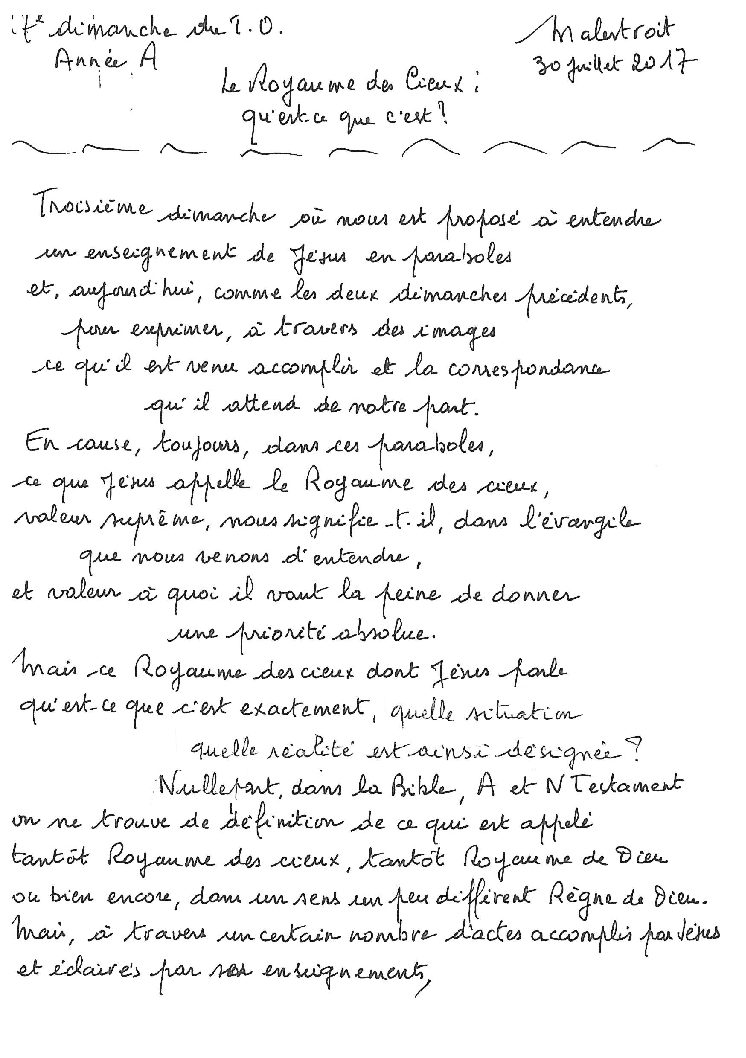 17e dimanche du T.O.
Malestroit
Année A
30 juillet 2017
Le Royaume des Cieux :
qu'est-ce que c'est ?
Troisième dimanche où nous est proposé à entendre
un enseignement de Jésus en paraboles
et, aujourd'hui, comme les deux dimanches précédents,
pour exprimer, à travers des images
ce qu'il est venu accomplir et la correspondance
qu'il attend de notre part.
En cause, toujours, dans ces paraboles,
ce que Jésus appelle le Royaume des cieux,
valeur suprême, nous signifie-t-il, dans l'évangile
que nous venons d'entendre,
et valeur à quoi il vaut la peine de donner
une priorité absolue.
Mais ce Royaume des cieux dont Jésus parle
qu'est-ce que c'est exactement, quelle situation
quelle réalité est ainsi désignée ?
Nulle part, dans la Bible, A et N Testament
on ne trouve de définition de ce qui est appelé
tantôt Royaume des cieux, tantôt Royaume de Dieu
ou bien encore, dans un sens un peu différent Règne de Dieu.
Mais, à travers un certain nombre d'actes accomplis par Jésus
et éclairés par ses enseignements,